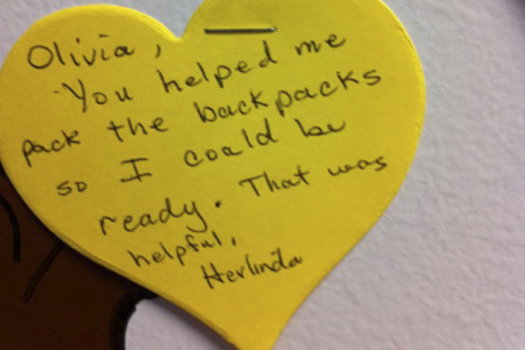 Olivia,
You helped me
pack the backpacks
so I could be
ready. That was
helpful,
Herlinda